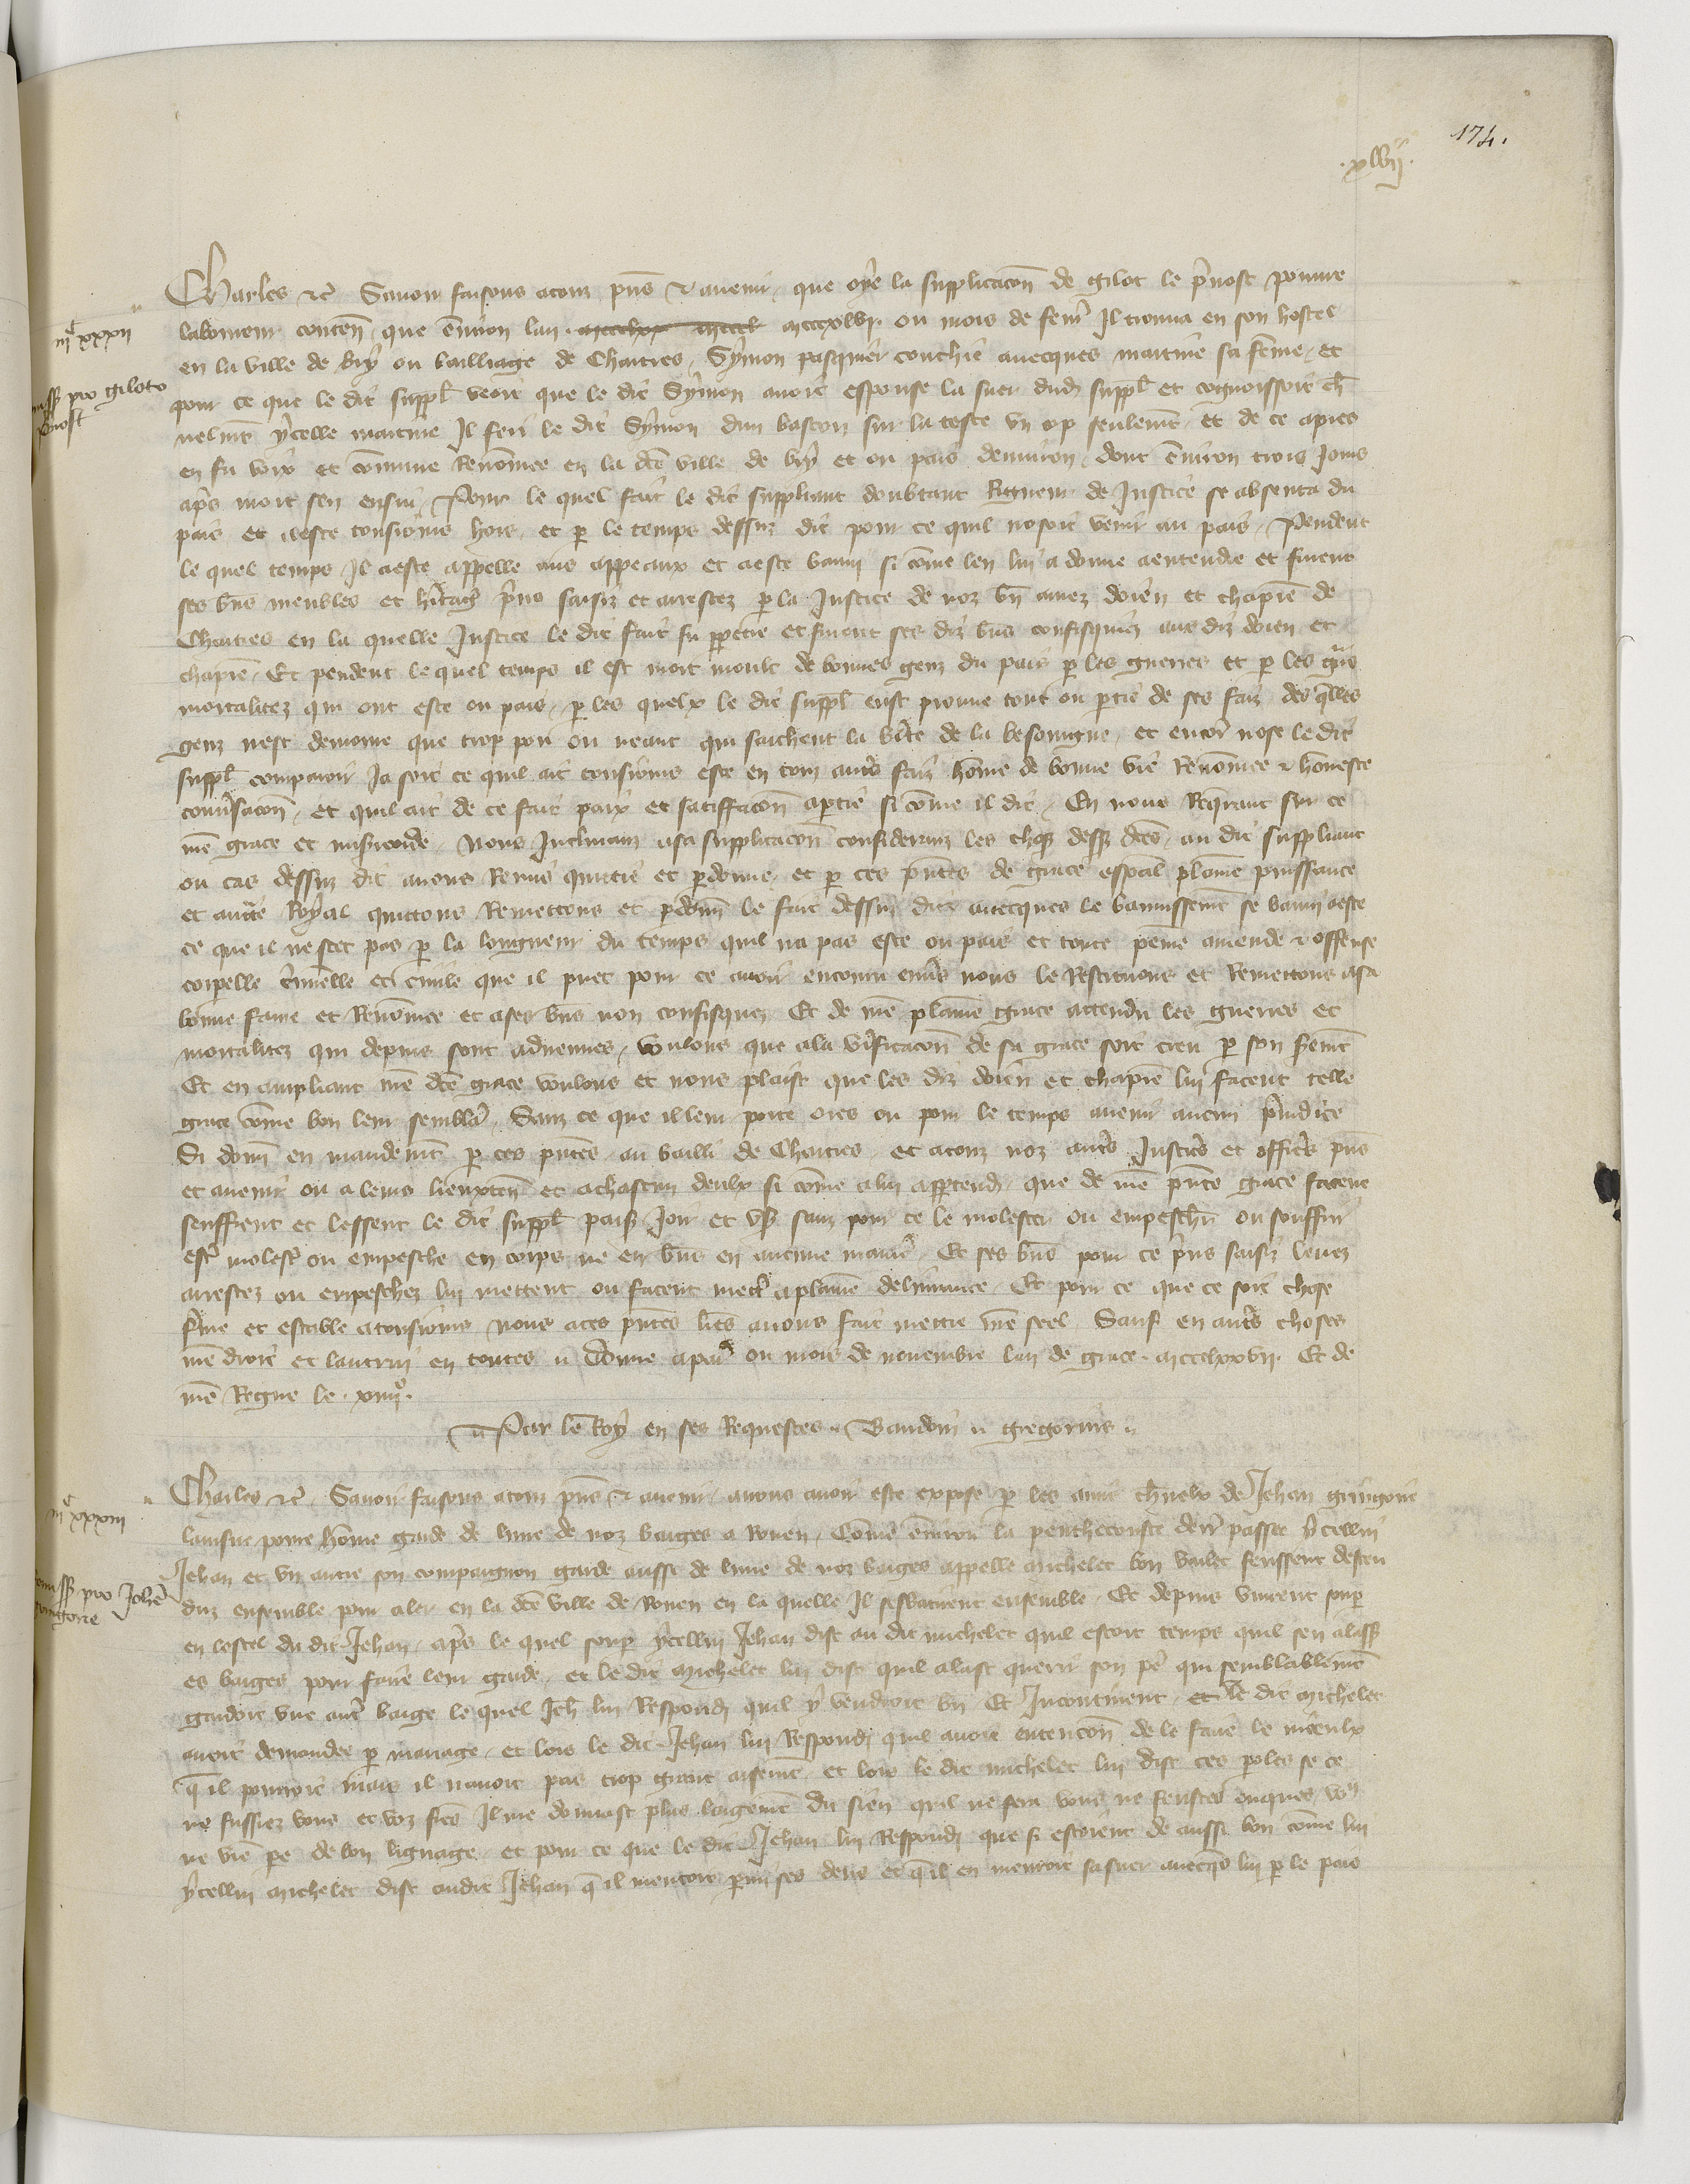 174.
.xlvij.
Charles etc Savoir faisons a touz pñs et avenir que oye la supplicacõn de Gilot le pvost povure
laboureur contenñ que environ lan mccclxx mcccl mcccxlvj. ou mois de fevr Il trouva en son hostel
mjc xxxij
en la ville de Bry ou bailliage de Chartres, Symon Pasquier couchie avecques Martine sa fẽme, et
remissio pro Giloto
pvost
pour ce que le dit suppl veoit que le dit Symon avoit espouse la suer dud suppl et cognoissoit ch
nelmt ycelle Martine Il feri le dit Symon dun baston sur la teste un cop seulemt Et de ce apres
en fu voix et cõmune Renõmee en la dce ville de Bry et ou pais denviron, dont environ trois Jours
aps mort sen ensui, Pour le quel fait le dit suppliant doubtant Rigueur de Justice se absenta du
pais et a este tousjours hors, et p le temps dessus dit pour ce quil nosoit venir au pais, Pendent
le quel temps Il a este appelle aus appeaux et a este banni si cõme len lui a donne a entendre et furent
ses bñs meubles et heritag prins saisiz et arrestez p la Justice de noz bñ amez doien et chapie de
Chartres en la quelle Justice le dit fait fu ppetre et furent ses diz bñs confisquiez aus diz doien et
chapie, Et pendent le quel temps il est mort moult de bonnes genz du pais p les guerres et p les gñs
mortalitez qui ont este ou pais, p les quelx le dit suppl eust prouve tout ou ptie de ses faiz des qlles
genz nest demoure que trop pou ou neant qui saichent la vite de la besoingne, et encor nose le dit
suppl comparoir Ja soit ce quil ait tousjours este en touz autrs faiz hõme de bonne vie Renõmee et honeste
convsacõn, et quil ait de ce fait paix et satiffacõn a ptie si cõme il dit, En nous Reqrant sur ce
nre grace et misicorde, Nous Inclinanz a sa supplicacõn considerans les choses dessus dces, au dit suppliant
ou cas dessus dit avons Remis quitte et pdonne, et p ces pntes de grace espal plaine puissance
et aucte Royal quittons Remettons et pdonñ le fait dessus dit avecques le bannissemt se banni a este
ce que il ne scet pas p la longueur du temps quil na pas este ou pais et toute peine amende et offense
corpelle criminelle et civile que il puet pour ce avoir encouru envs nous le Restituons et Remettons a sa
bonne fame et Renõmee et a ses bñs non confisquez Et de nre plaine grace attendu les guerres et
mortalitez qui depuis sont advenues, voulons que a la vificacõn de sa grace soit creu p son semt
Et en ampliant nre dce grace voulons et nous plaist que les diz doien et chapie lui facent telle
grace cõme bon leur semblera, Sanz ce que il leur porte ores ou pour le temps avenir aucun pjudice
Si donñ en mandemt p ces pntes au bailli de Chartres, et a touz noz autrs Justics et officrs pñs
et avenir ou a leurs lieuxteñ et a chascun deulx si cõme a lui appartendra que de nre pnte grace facent
seuffrent et lessent le dit suppl paisiblement Joir et user sanz pour ce le molester ou empeschr ou souffrir
estre moleste ou empesche en corps ne en bñs en aucune manire, Et ses bñs pour ce prins saisiz levez
arrestez ou empeschez lui mettent ou facent mectre a plaine delivrance, Et pour ce que ce soit chose
ferme et estable a tousjours Nous a ces pntes lres avons fait mettre nre seel, Sauf en autrs choses
nre droit et lautrui en toutes, donne a paris ou mois de novembre lan de grace mccclxxvij. Et de
nre Regne le .xiiijo.
Par le Roy en ses Requestes, Baudoin, Gregorius
Charles etc Savoir faisons a touz pñs et avenir, a nous avoir este expose p les amis chnelx de Jehan Gringoire
mjc xxxiij
lainsne povre hõme garde de lune de noz barges a Rouen, Cõme environ la penthecouste derr passee ycellui
Jehan et un autre son compaignon garde aussi de lune de noz barges appelle Michelet bon varlet feussent descen
remissio pro Johe
Gringoire
duz ensemble pour aler en la dce ville de Rouen en la quelle Il sesbatirent ensemble, Et depuis vinrent soup
en lostel du dit Jehan, aps le quel soup ycellui Jehan dist au dit Michelet quil estoit temps quil sen alass
es barges pour faire leur garde, et le dit Michelet lui dist quil alast querir son pe qui semblablemt
gardoit une autr barge le quel Jeh lui Respondi quil y vendroit bñ Et Incontinent, et le dit Michelet
avoit demandee p mariage, et lors le dit Jehan lui Respondi quil avoit entencõn de le faire le mieulx
q il pourroit mais il navoit pas trop grant aisemt, et lors le dit Michelet lui dist ces poles se ce
ne fussiez vous et voz fres Il me donnast plus largemt du sien quil ne fera vous ne feustes onques, vous
ne vre pe de bon lignage, et pour ce que le dit Jehan lui Respondi que si estoient de aussi bon cõme lui
ycellui Michelet dist audit Jehan q il mentoit parmi ses dens et q il en menroit sa suer avecqs lui p le pais